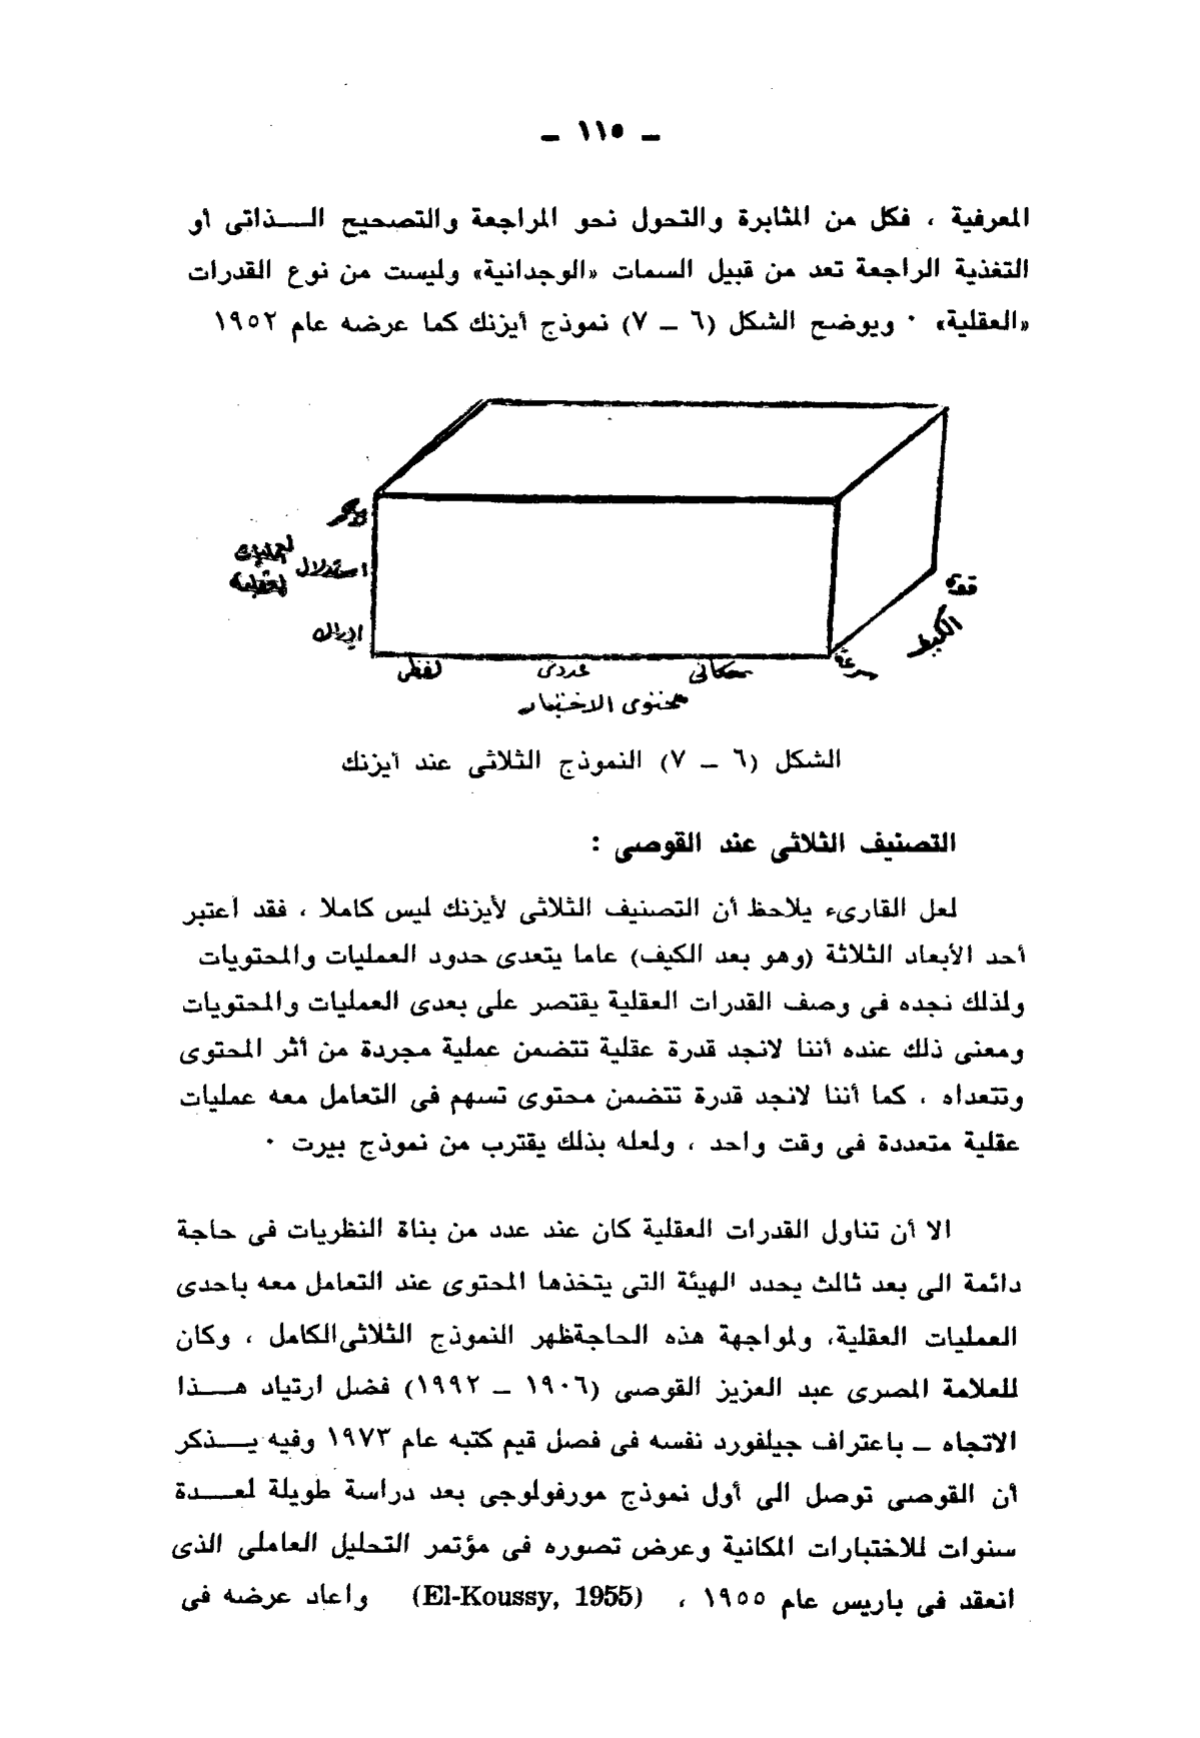 ــ ١١٥ ــ
المعرفية ، فكل من المثابرة والتحول نحو المراجعة والتصحيح الـــذاتى أو
التغذية الراجعة تعد من قبيل السمات «الوجدانية» وليست من نوع القدرات
«العقلية» ٠ ويوضح الشكل (٦ ــ ٧) نموذج أيزنك كما عرضه عام ١٩٥٢
تذكر
العمليات
العقلية
استدلال
إدراك
قوة
الكيف
سرعة
لفظى عددى مكانى
محتوى الاختبار
الشكل (٦ ــ ٧) النموذج الثلاثى عند أيزنك
التصنيف الثلاثى عند القوصى :
لعل القارىء يلاحظ أن التصنيف الثلاثى لأيزنك ليس كاملا ، فقد اعتبر
أحد الأبعاد الثلاثة (وهو بعد الكيف) عاما يتعدى حدود العمليات والمحتويات
ولذلك نجده فى وصف القدرات العقلية يقتصر على بعدى العمليات والمحتويات
ومعنى ذلك عنده أننا لانجد قدرة عقلية تتضمن عملية مجردة من أثر المحتوى
وتتعداه ، كما أننا لانجد قدرة تتضمن محتوى تسهم فى التعامل معه عمليات
عقلية متعددة فى وقت واحد ، ولعله بذلك يقترب من نموذج بيرت ٠
الا أن تناول القدرات العقلية كان عند عدد من بناة النظريات فى حاجة
دائمة الى بعد ثالث يحدد الهيئة التى يتخذها المحتوى عند التعامل معه باحدى
العمليات العقلية، ولمواجهة هذه الحاجةظهر النموذج الثلاثىالكامل ، وكان
للعلامة المصرى عبد العزيز القوصى (١٩٠٦ ــ ١٩٩٢) فضل ارتياد هـــذا
الاتجاه ــ باعتراف جيلفورد نفسه فى فصل قيم كتبه عام ١٩٧٣ وفيه يـــذكر
أن القوصى توصل الى أول نموذج مورفولوجى بعد دراسة طويلة لعـــدة
سنوات للاختبارات المكانية وعرض تصوره فى مؤتمر التحليل العاملى الذى
انعقد فى باريس عام ١٩٥٥ ، (El-Koussy, 1955) واعاد عرضه فى